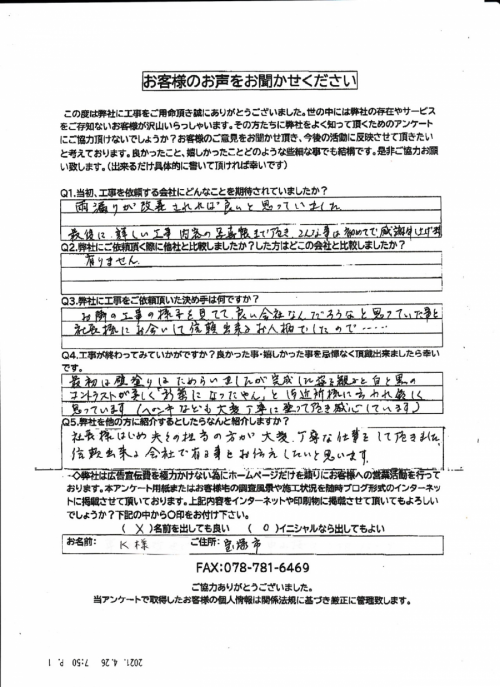 お客様のお声をお聞かせください
この度は弊社に工事をご用命頂き誠にありがとうございました。世の中には弊社の存在やサービス
をご存知ないお客様が沢山いらっしゃいます。その方たちに弊社をよく知って頂くためのアンケート
にご協力頂けないでしょうか？お客様のご意見をお聞かせ頂き、今後の活動に反映させて頂きたい
と考えております。良かったこと、嬉しかったことどのような些細な事でも結構です。是非ご協力お願
い致します。（出来るだけ具体的に書いて頂ければ幸いです）
Q1.当初、工事を依頼する会社にどんなことを期待されていましたか？
雨漏りが改善されれば良いと思っていました
最後に詳しい工事内容の写真帳まで頂き、こんな事は初めてで感謝申し上げます
Q2.弊社にご依頼頂く際に他社と比較しましたか？した方はどこの会社と比較しましたか？
有りません
Q3.弊社に工事をご依頼頂いた決め手は何ですか？
お隣の工事の様子を見てて、良い会社なんだろうなと思っていた事と
社長様にお会いして信頼出来るお人柄でしたので……
Q4.工事が終わってみていかがですか？良かった事・嬉しかった事を忌憚なく頂戴出来ましたら幸い
です。
最初は壁塗りはためらいましたが完成した姿を観ると白と黒の
コントラストが美しく「新築になったやん」と御近所様に言われ嬉しく
思っています（ペンキなども大変丁寧に塗って頂き感心しています）
Q5.弊社を他の方に紹介するとしたらなんと紹介しますか？
社長様はじめ夫々の担当の方が大変丁寧な仕事をして頂きました
信頼出来る会社で有る事をお伝えしたいと思います。
◇弊社は広告宣伝費を極力かけない為にホームページだけを頼りにお客様への営業活動を行って
おります。本アンケート用紙またはお客様宅の調査風景や施工状況を随時ブログ形式のインターネッ
トに掲載させて頂いております。上記内容をインターネットや印刷物に掲載させて頂いてもよろしい
でしょうか？下記の中から○印をお付け下さい。
（ X ）名前を出しても良い （ O ）イニシャルなら出してもよい
お名前： K様 ご住所： 宝塚市
FAX:078-781-6469
ご協力ありがとうございました。
当アンケートで取得したお客様の個人情報は関係法規に基づき厳正に管理致します。
2021. 4.26 7:50 P. 1